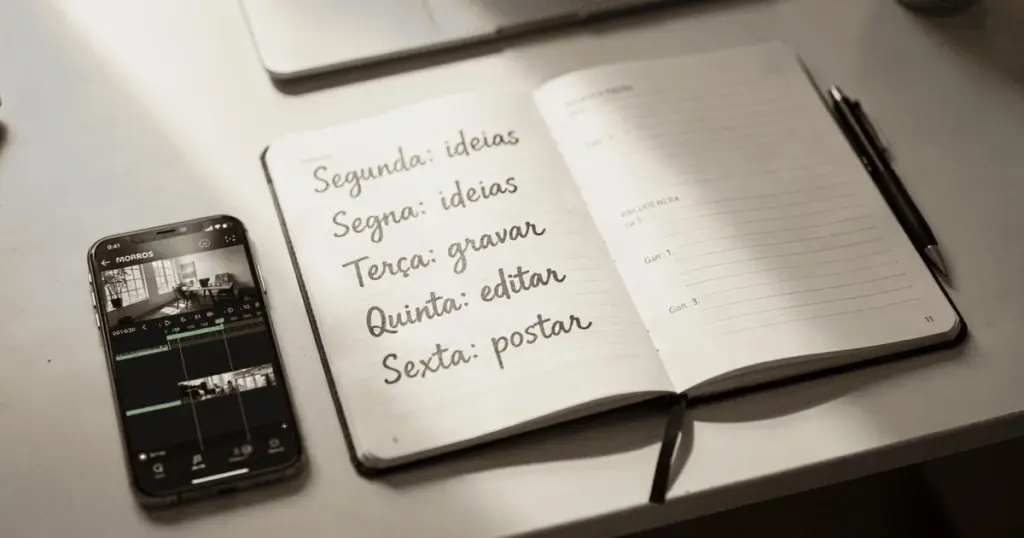 9:41
MORROS
Segunda: ideias
Segna: ideias
Terça: gravar
Quinta: editar
Sexta: postar
6
Gart. 1.
Gart. 3.
11